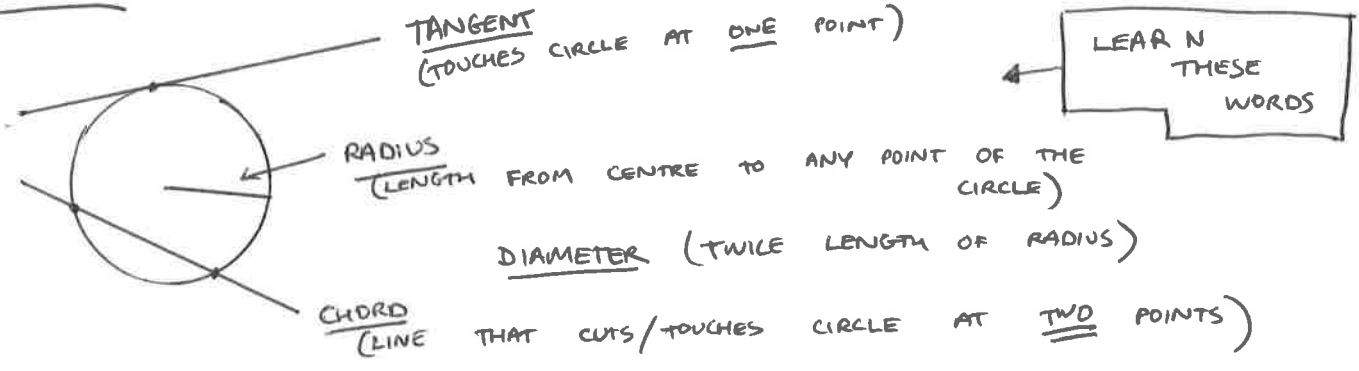 TANGENT
(TOUCHES CIRCLE AT ONE POINT)
LEARN
THESE
WORDS
RADIUS
(LENGTH FROM CENTRE TO ANY POINT OF THE
CIRCLE)
DIAMETER (TWICE LENGTH OF RADIUS)
CHORD
(LINE THAT CUTS/TOUCHES CIRCLE AT TWO POINTS)